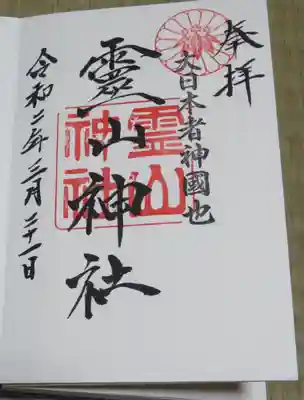 奉拝
大日本者神國也
靈山神社
霊山
神社
令和二年三月二十一日